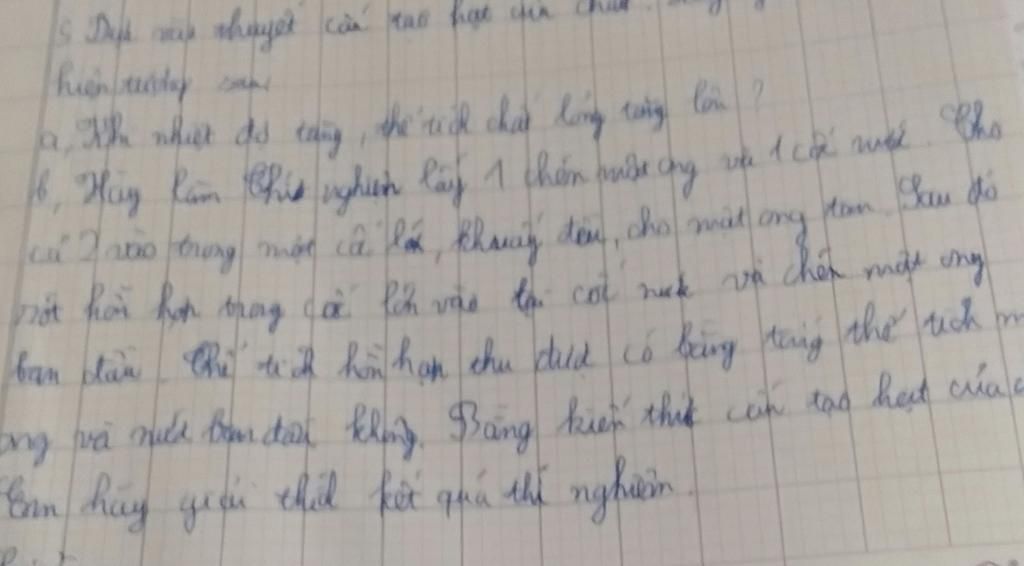 5 Dựa vào thuyết cấu tạo hạt của chất
hiện tượng sau
a, Khi nhiệt độ tăng, thể tích chất lỏng tăng lên?
b, Hãy làm thí nghiệm lấy 1 chén mật ong và 1 cốc nước. Cho
cả 2 vào trong một cố lớn, khuấy đều, cho mật ong tan. Sau đó
rót hỗn hợp trong cố lớn vào lại cốc nước và chén mật ong
ban đầu. Thể tích hỗn hợp thu được có bằng tổng thể tích m
ong và nước ban đầu không. Bằng kiến thức cấu tạo hạt của c
Em hãy giải thích kết quả thí nghiệm.